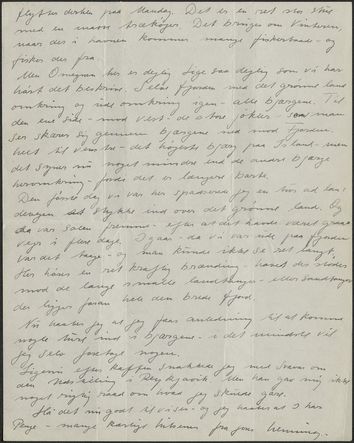 flytter derhen paa Mandag. Det er en ret stor Stue
med en masse Det bringes om Vinteren,
naar der i havnen kommer mange fiskerbaade - og
fiskes der fra.
Men Omegnen her er dejlig lige saa dejlig som vi har
hørt det beskrive. Selve fjorden med det grønne land
omkring og uden omkring igen - alle bjærgene. Til
den ene side - mod Vest - de store jøkler - som man
ser skærer sig gennem bjærgene ned mod fjorden.
helt til Venstre - det højeste bjærg paa Island - men
det synes nu noget mindre end de andre bjærge
heromkring - fordi det er længere borte.
Den første dag vi var her spadserede jeg en tur ad lan-
devejen et stykke ud over det grønne land. Og
da var solen fremme - efter at det havde været graa-
vejr i flere dage. I gaar - da vi var ude paa fjorden
var det taage - og man kunde ikke se ret langt.
Her høres en ret kraftig brænding - havet der støder
mod de lange smalle landtanger - eller sandtanger
der ligger foran hele den brede fjord.
Nu haaber jeg at jeg faar anledning til at komme
nogle ture ind i bjærgene - i det mindste vil
jeg selv foretage nogen.
Ligesom efter kaffen snakkede jeg med Svava om
den udstilling i Reykjavik. Men han gav mig ikke
noget rigtig raad om hvad jeg skulde gøre.
Ha' det nu godt til vi ses - og jeg haaber at I har
Penge - mange kærlige hilsener fra jeres Henning.